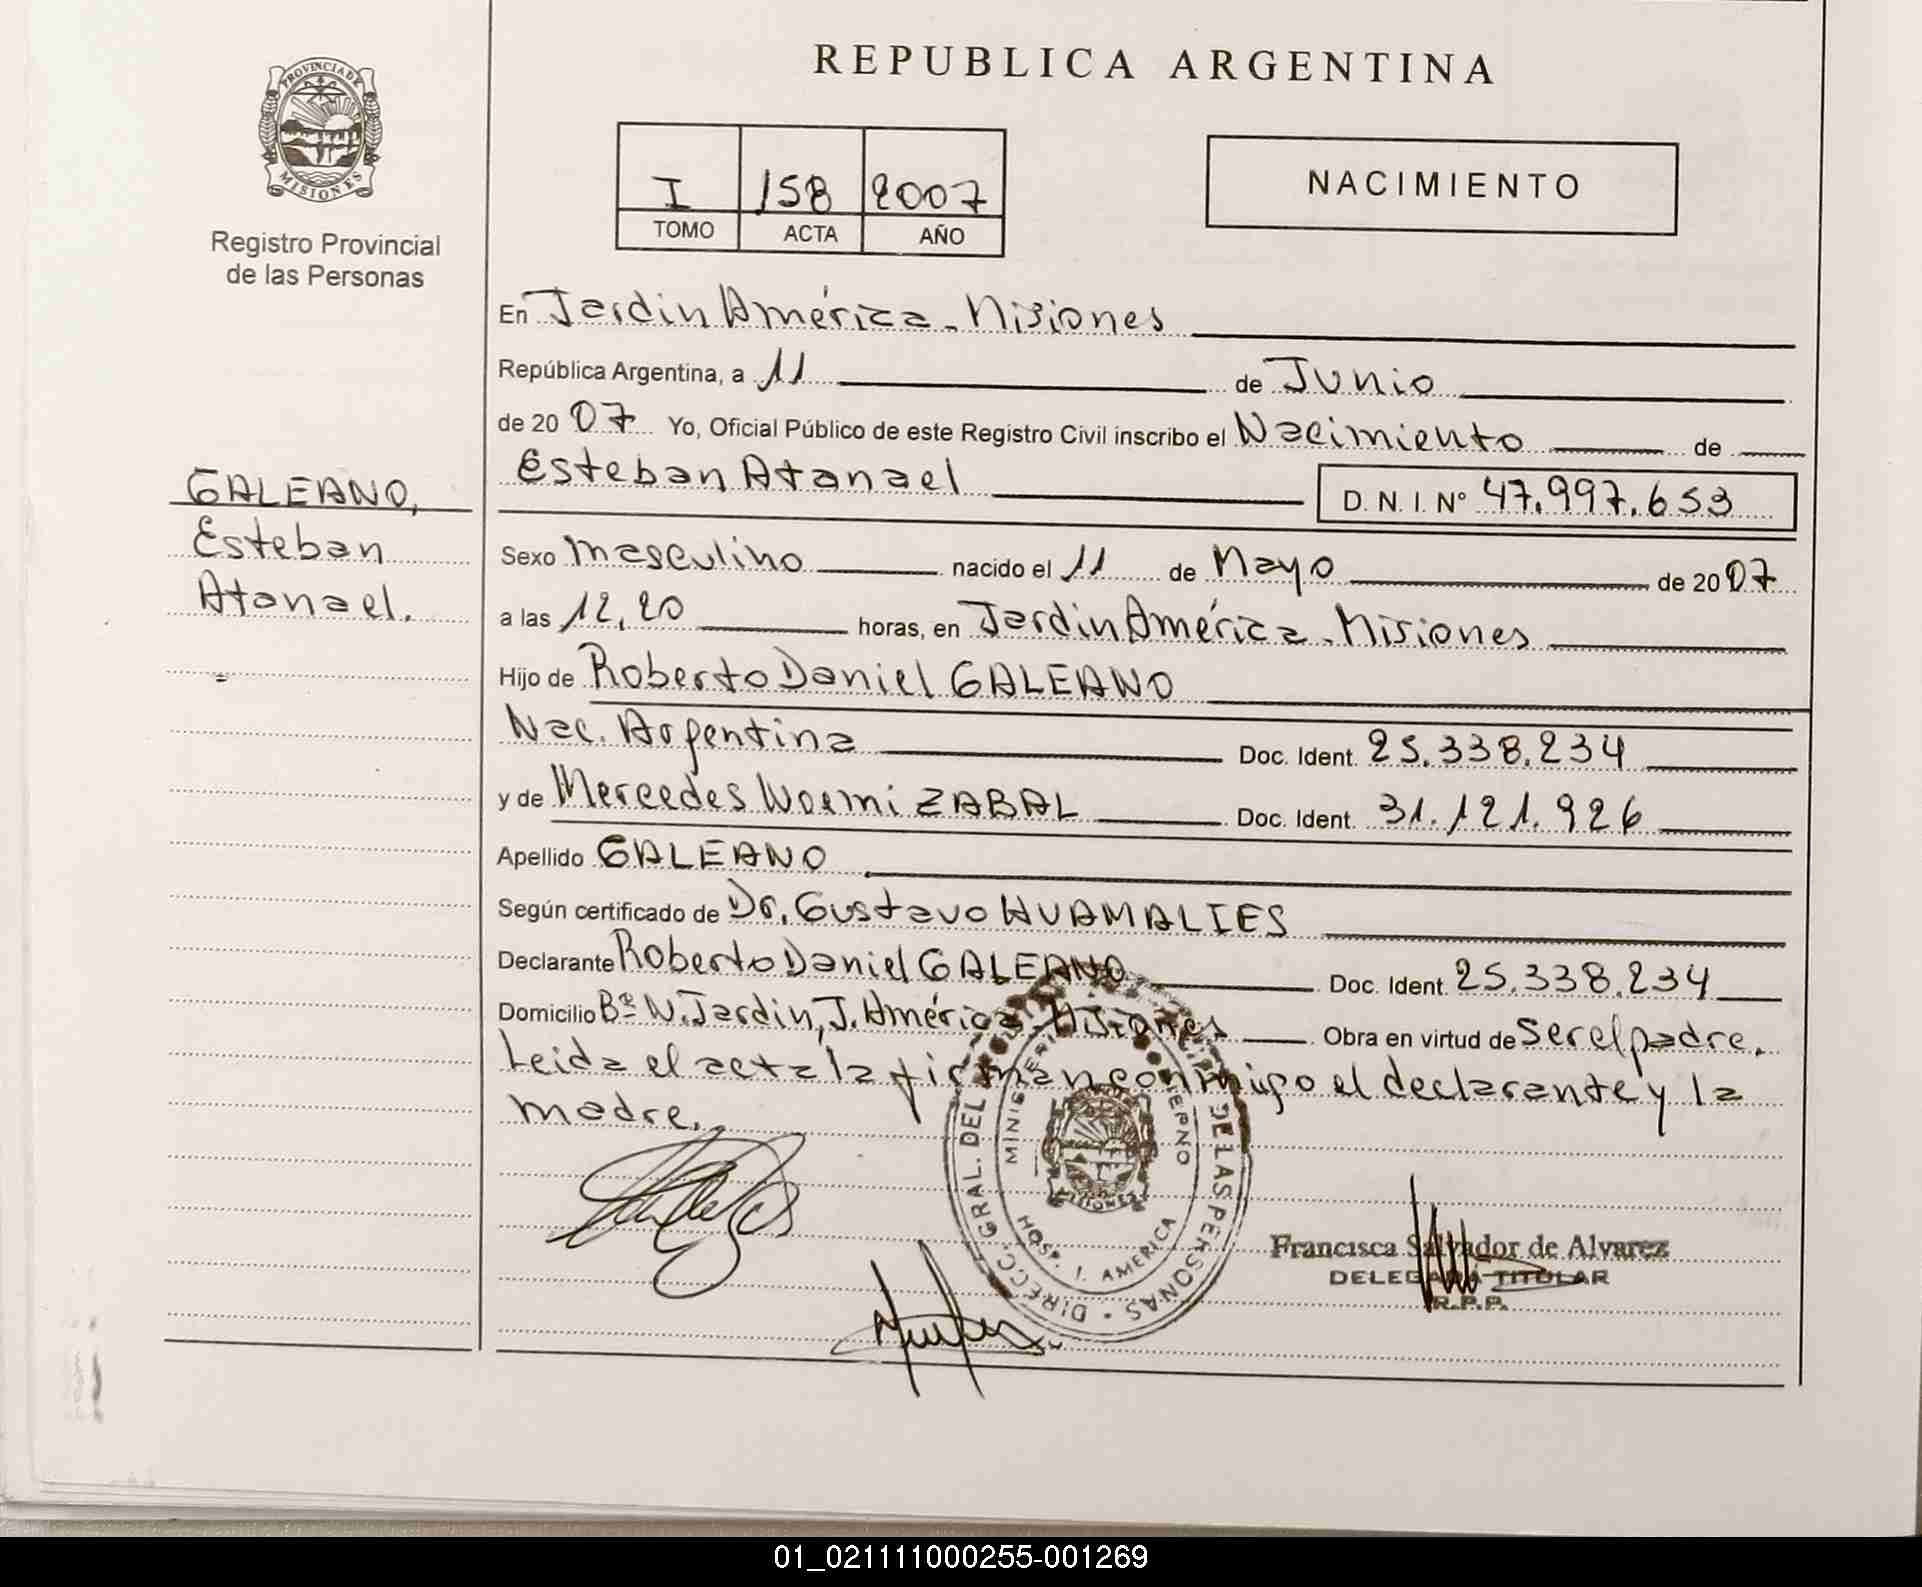 REPUBLICA ARGENTINA
PROVINCIA DE
MISIONES
Registro Provincial
de las Personas
I 158 2007
TOMO ACTA AÑO
NACIMIENTO
En Jardin América - Misiones
República Argentina, a 11 de Junio
de 2007 Yo, Oficial Público de este Registro Civil inscribo el Nacimiento de
Esteban Atanael D. N. I. Nº 47.997.653
GALEANO,
Esteban
Atanael.
Sexo masculino nacido el 11 de Mayo de 2007
a las 12,20 horas, en Jardin América - Misiones
Hijo de Roberto Daniel GALEANO
Nac. Argentina Doc. Ident. 25.338.234
y de Mercedes Noemi ZABAL Doc. Ident. 31.121.926
Apellido GALEANO
Según certificado de Dr. Gustavo HUAMALIES
Declarante Roberto Daniel GALEANO Doc. Ident. 25.338.234
Domicilio Bº N. Jardin, J. América - Misiones Obra en virtud de ser el padre.
Leida el acta la firman conmigo el declarante y la
madre.
DIRECC. GRAL. DEL DE LAS PERSONAS
HOSP. J. AMERICA
MISIONES
Francisca Salvador de Alvarez
DELEGADA TITULAR
R.P.P.
01_021111000255-001269